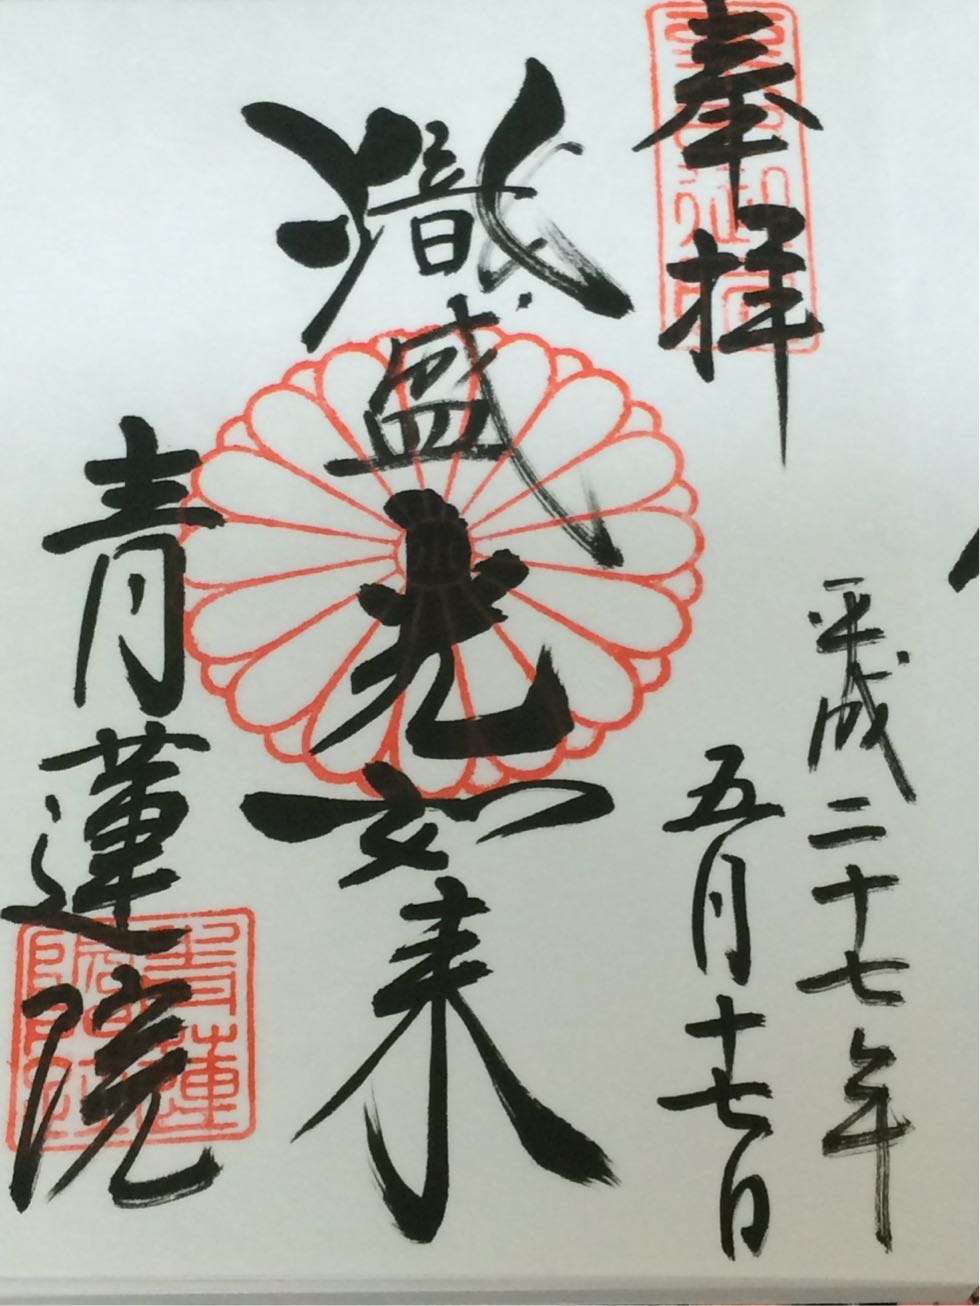 奉拝
平成二十七年
五月十七日
熾盛光如来
青蓮院